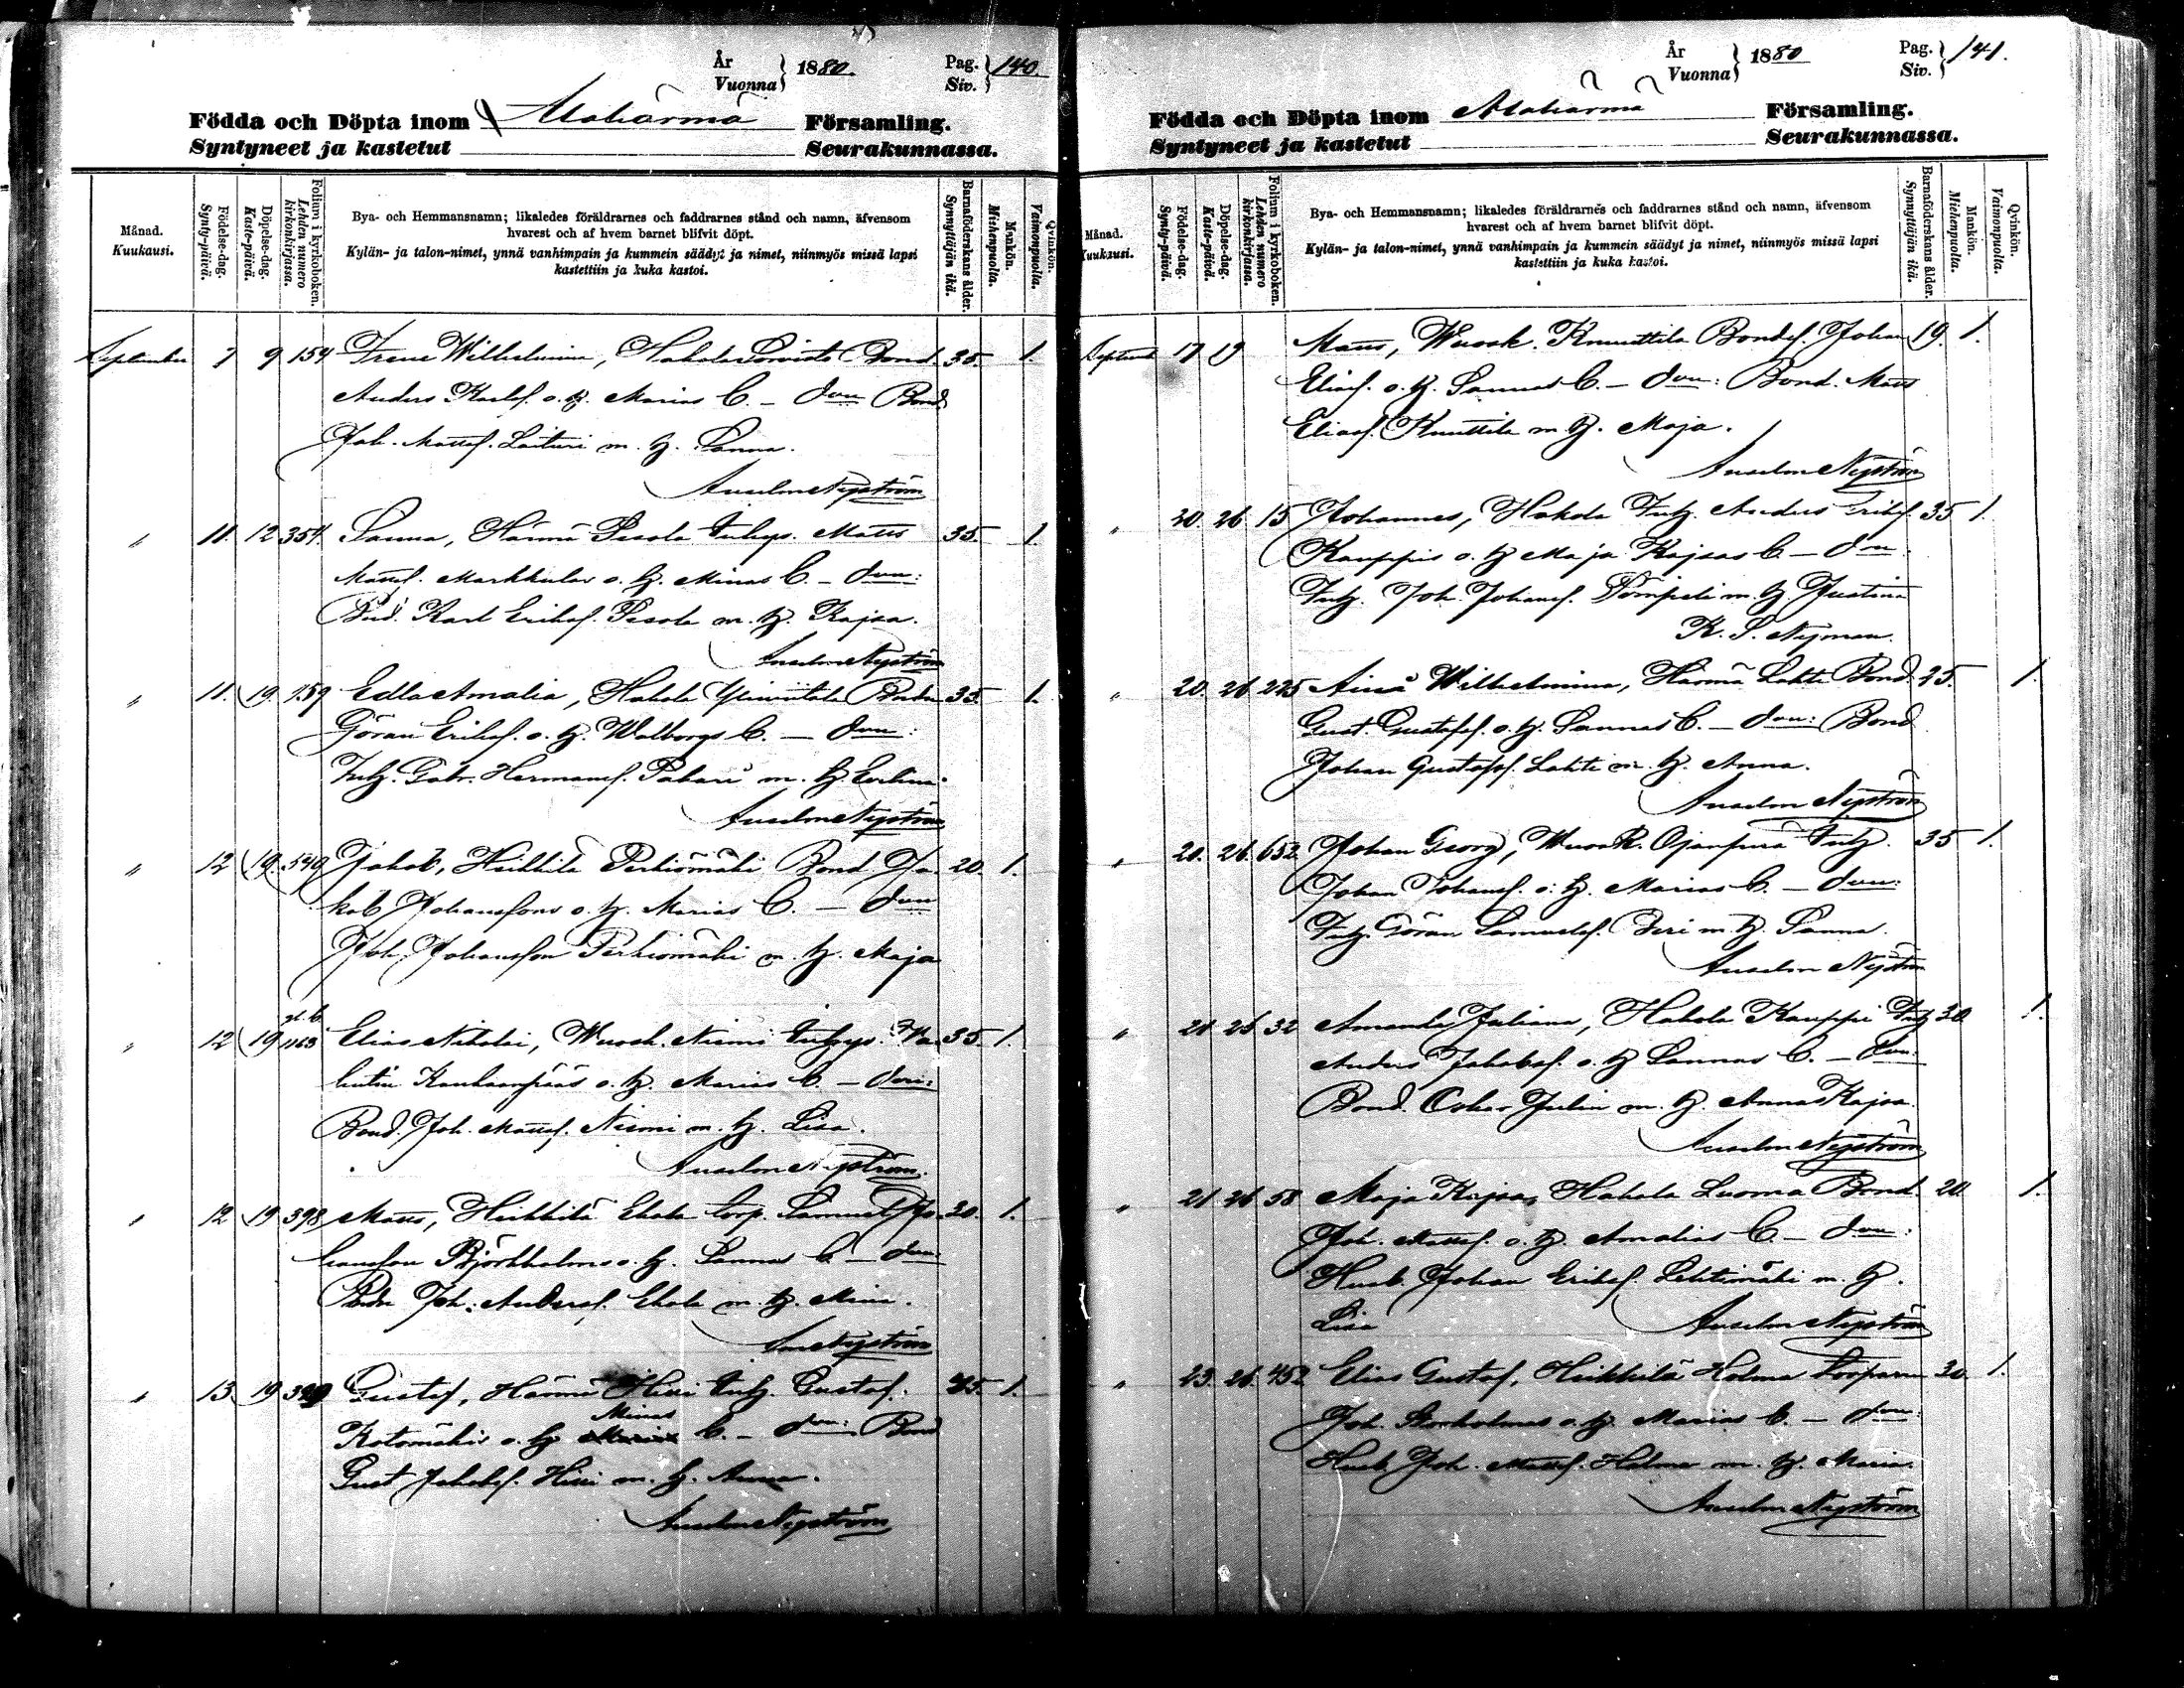 År
Vuonna } 1880. Pag.
Siv. } 140.
Födda och Döpta inom Alahärmä Församling.
Syntyneet ja kastetut Seurakunnassa.
Månad.
Kuukausi.
Födelse-dag.
Synty-päivä.
Döpelse-dag.
Kaste-päivä.
Folium i kyrkoboken.
Lehden numero
kirkonkirjassa.
Bya- och Hemmansnamn; likaledes föräldrarnes och faddrarnes stånd och namn, äfvensom
hvarest och af hvem barnet blifvit döpt.
Kylän- ja talon-nimet, ynnä vanhimpain ja kummein säädyt ja nimet, niinmyös missä lapsi
kastettiin ja kuka kastoi.
Barnaföderskans ålder.
Synnyttäjän ikä.
Mankön.
Miehenpuolta.
Qvinkön.
Vaimonpuolta.
September 7 9 154 Irene Wilhelmina, Hakola Bond. 35. 1.
Anders Karlss. o. h. Marias C. – dvn Bond
Joh. Mattss. Laituri m. h. Sanna.
Anselm Nyström
" 11. 12 354. Sanna, Härmä Pesola Inhys. Matts 35. 1.
Mattss. Markkulas o. h. Minas C. – dvn:
Bnd. Karl Erikss. Pesola m. h. Kajsa.
Anselm Nyström
" 11. 19. 159 Edla Amalia, Hakola 35. 1.
Göran Erikss. o. h. Walborgs C. – dvn:
Inh. Gabr. Hermanss. m. h. Evelina.
Anselm Nyström
" 12 19. 549 Jakob, Heikkilä Perkiömäki Bond. Ja- 20. 1.
kob Johanssons o. h. Marias C. – dvn
Joh. Johansson Perkiömäki m. h. Maja
" 12 19 1163 Elias Nikolai, Wuosk. Niemi Inhys. 35. 1.
Kankaanpääs o. h. Marias C. – dvn:
Bond. Joh. Mattss. Niemi m. h. Lisa.
Anselm Nyström.
" 12 19 598 Matts, Heikkilä Ekola Torp. Samuel Jo- 30. 1.
hansson Björkholms o. h. Sannas C. – dvn
Joh. Anderss. Ekola m. h. Mina.
Ans. Nyström
" 13. 19 Gustaf, Härmä Inh. Gustaf 1.
Kotomäkis o. h. Minas C. – dvn: Bond
Gust Jakobss. m. h. Anna.
Anselm Nyström
År
Vuonna } 1880 Pag.
Siv. } 141.
Födda och Döpta inom Alahärmä Församling.
Syntyneet ja kastetut Seurakunnassa.
Månad.
Kuukausi.
Födelse-dag.
Synty-päivä.
Döpelse-dag.
Kaste-päivä.
Folium i kyrkoboken.
Lehden numero
kirkonkirjassa.
Bya- och Hemmansnamn; likaledes föräldrarnes och faddrarnes stånd och namn, äfvensom
hvarest och af hvem barnet blifvit döpt.
Kylän- ja talon-nimet, ynnä vanhimpain ja kummein säädyt ja nimet, niinmyös missä lapsi
kastettiin ja kuka kastoi.
Barnaföderskans ålder.
Synnyttäjän ikä.
Mankön.
Miehenpuolta.
Qvinkön.
Vaimonpuolta.
Septemb 17 19 Matts, Wuosk. Knuuttila Bondes. Johan 19. 1.
Eliass. o. h. Sannas C. – dvn: Bond. Matts
Eliass. Knuttila m. h. Maja.
Anselm Nyström
" 20. 26 15 Johannes, Hakola Inh. Anders Erikss. 35 1.
Kauppis o. h. Maja Kajsas C – dvn.
Inh. Joh. Johanss. m. h. Justina
K. S. Nyman.
" 20. 26 225 Aina Wilhelmina, Härmä Lahti Bond. 25. 1.
Gust. Gustafss. o. h. Sannas C. – dvn: Bond
Johan Gustafss. Lahti m. h. Anna.
Anselm Nyström
" 20. 26. 652 Johan Georg, Wuosk. Ojanperä Inh. 35 1.
Johan Johanss. o. h. Marias C. – dvn:
Inh. Göran Samuelss. m. h. Sanna.
Anselm Nyström
" 21 26 32 Amanda Juliana, Hakola Kauppi Inh 30 1.
Anders Jakobss. o. h. Sannas C. – dvn:
Bond. Oskar Julin m. h. Anna Kajsa.
Anselm Nyström
" 21 26 58 Maja Kajsa, Hakola Luoma Bond. 20 1.
Joh. Mattss. o. h. Amalias C – dvn:
Husb. Johan Erikss. Lehtimäki m. h.
Lisa Anselm Nyström
" 23. 26. 452 Elias Gustaf, Heikkilä Holma Torparn 30 1.
Joh. Storholms o. h. Marias C. – dvn:
Husb. Joh. Mattss. Holma m. h. Maria.
Anselm Nyström